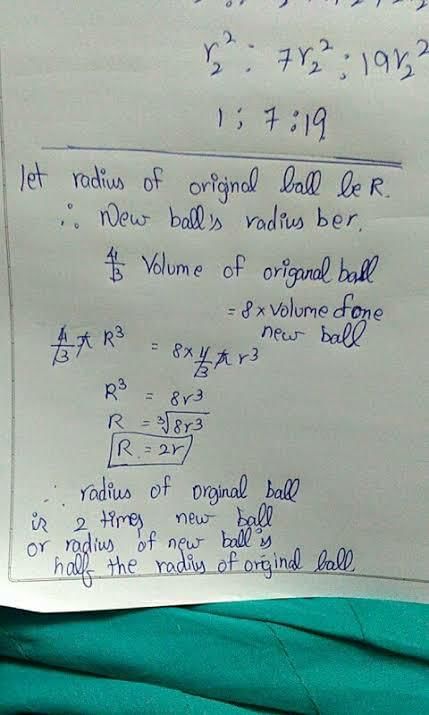 r₂² : 7r₂² : 19r₂²
1 : 7 : 19
let radius of orignal ball be R.
∴ New ball's radius be r.
4/3 Volume of origanal ball
= 8 × volume of one
new ball
4/3 π R³ = 8 × 4/3 π r³
R³ = 8r³
R = ³√8r³
R = 2r
∴ radius of orginal ball
is 2 times new ball
or radius of new ball's
half the radius of orginal ball.